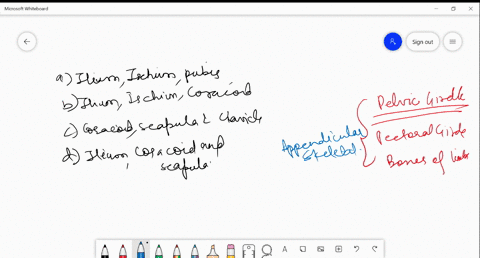 Microsoft Whiteboard
Sign out
a) Ilium, Ischium, pubis
b) Ilium, Ischium, Coracoid
c) Coracoid, scapula & Clavicle
d) Ilium, Coracoid and
scapula
Appendicular
skeletal
Pelvic Girdle
Pectoral Girdle
Bones of limbs